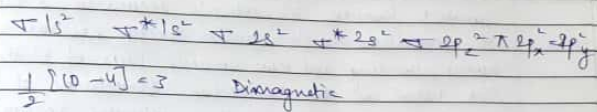 σ1s² σ*1s² σ 2s² σ* 2s² σ 2p_z² π 2p_x² = 2p_y²
1/2 [10 - 4] = 3 Dimagnetic